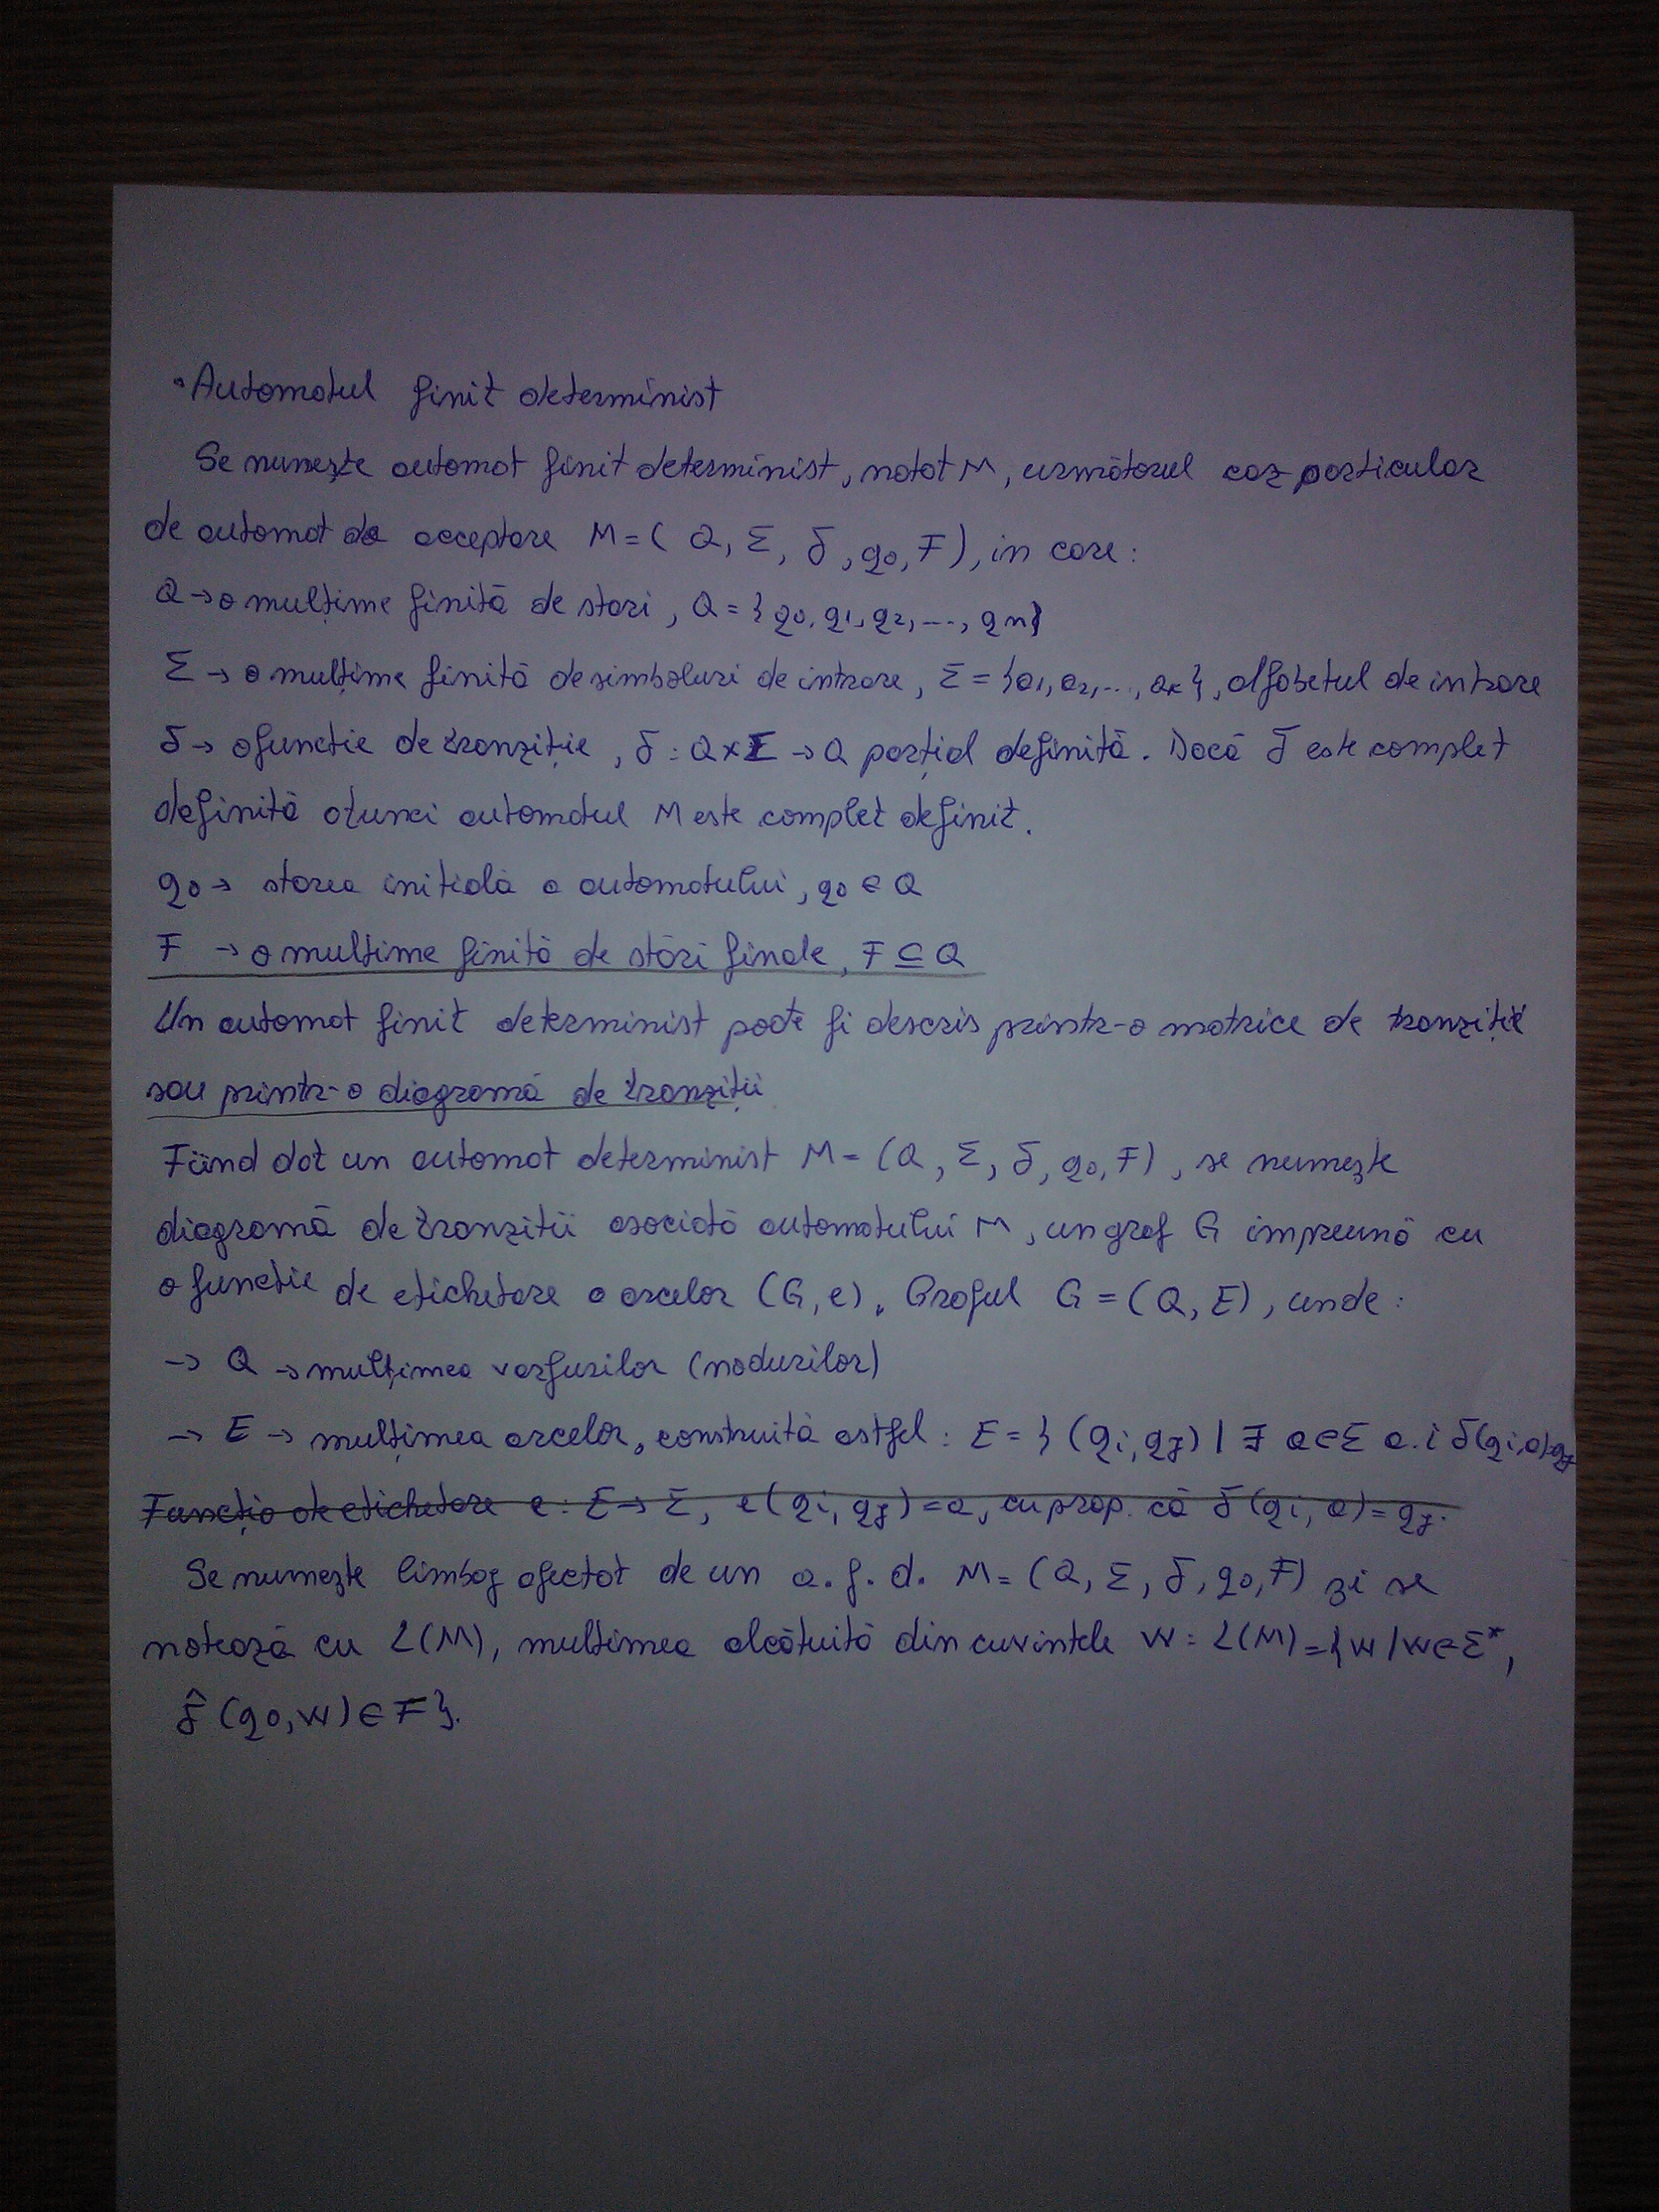 • Automatul finit determinist
Se numește automat finit determinist, notat M, următorul caz particular
de automat de acceptare M = ( Q, Σ, δ, q0, F), in care:
Q → o mulțime finită de stari, Q = {q0, q1, q2, ..., qn}
Σ → o mulțime finită de simboluri de intrare, Σ = {a1, a2, ..., ak}, alfabetul de intrare
δ → o functie de tranziție, δ : Q x Σ → Q parțial definită. Dacă δ este complet
definită atunci automatul M este complet definit.
q0 → starea initială a automatului, q0 ∈ Q
F → o mulțime finită de stări finale, F ⊆ Q
Un automat finit determinist poate fi descris printr-o matrice de tranziție
sau printr-o diagramă de tranziții
Fiind dat un automat determinist M = (Q, Σ, δ, q0, F), se numește
diagramă de tranzitii asociată automatului M, un graf G impreună cu
o functie de etichetare a arcelor (G, e). Graful G = (Q, E), unde:
→ Q → mulțimea varfurilor (nodurilor)
→ E → mulțimea arcelor, construită astfel : E = } (qi, qj) | ∃ a∈Σ a.i δ(qi,a)=qj
Funcția de etichetare e : E → Σ, e(qi, qj) = a, cu prop. că δ(qi, a) = qj.
Se numește limbaj afectat de un a.f.d. M = (Q, Σ, δ, q0, F) și se
notează cu L(M), multimea alcătuită din cuvintele w : L(M) = {w / w∈Σ*,
δ̂ (q0, w) ∈ F}.